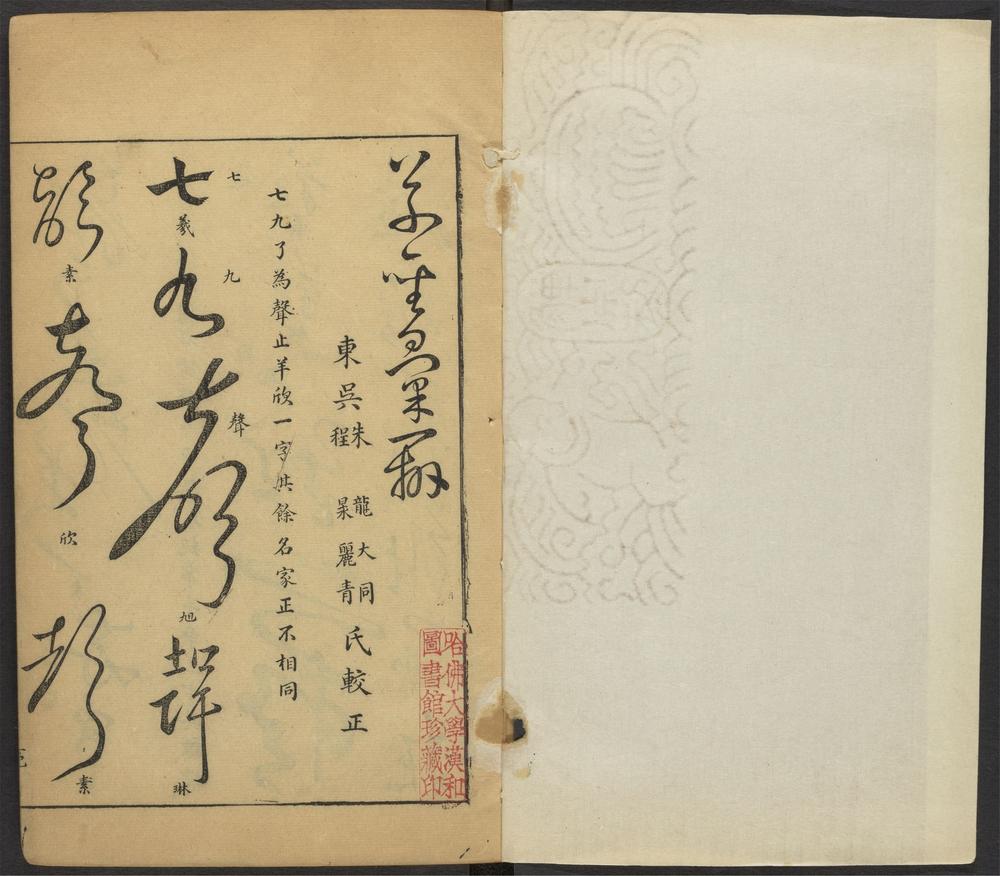 草聖彙辨
東吳
朱龍大同
程杲麗青
氏較正
七九了為聲止羊欣一字供餘名家正不相同
七 九 聲
七 羲 九 聲 旭 聲 琳
聲 素 聲 欣 聲 素
哈佛大學漢和
圖書館珍藏印